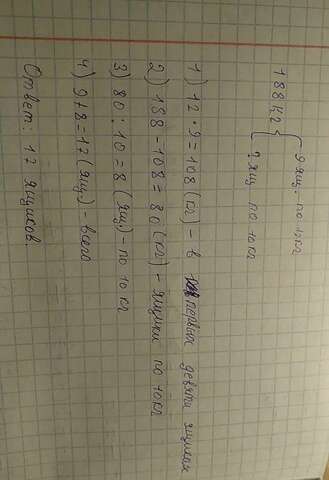 188 кг { 9 ящ. по 12 кг
? ящ по 10 кг
1) 12 · 9 = 108 (кг) - в первых девяти ящиках
2) 188 - 108 = 80 (кг) - ящики по 10 кг
3) 80 : 10 = 8 (ящ) - по 10 кг
4) 9 + 8 = 17 (ящ.) - всего
Ответ: 17 ящиков.